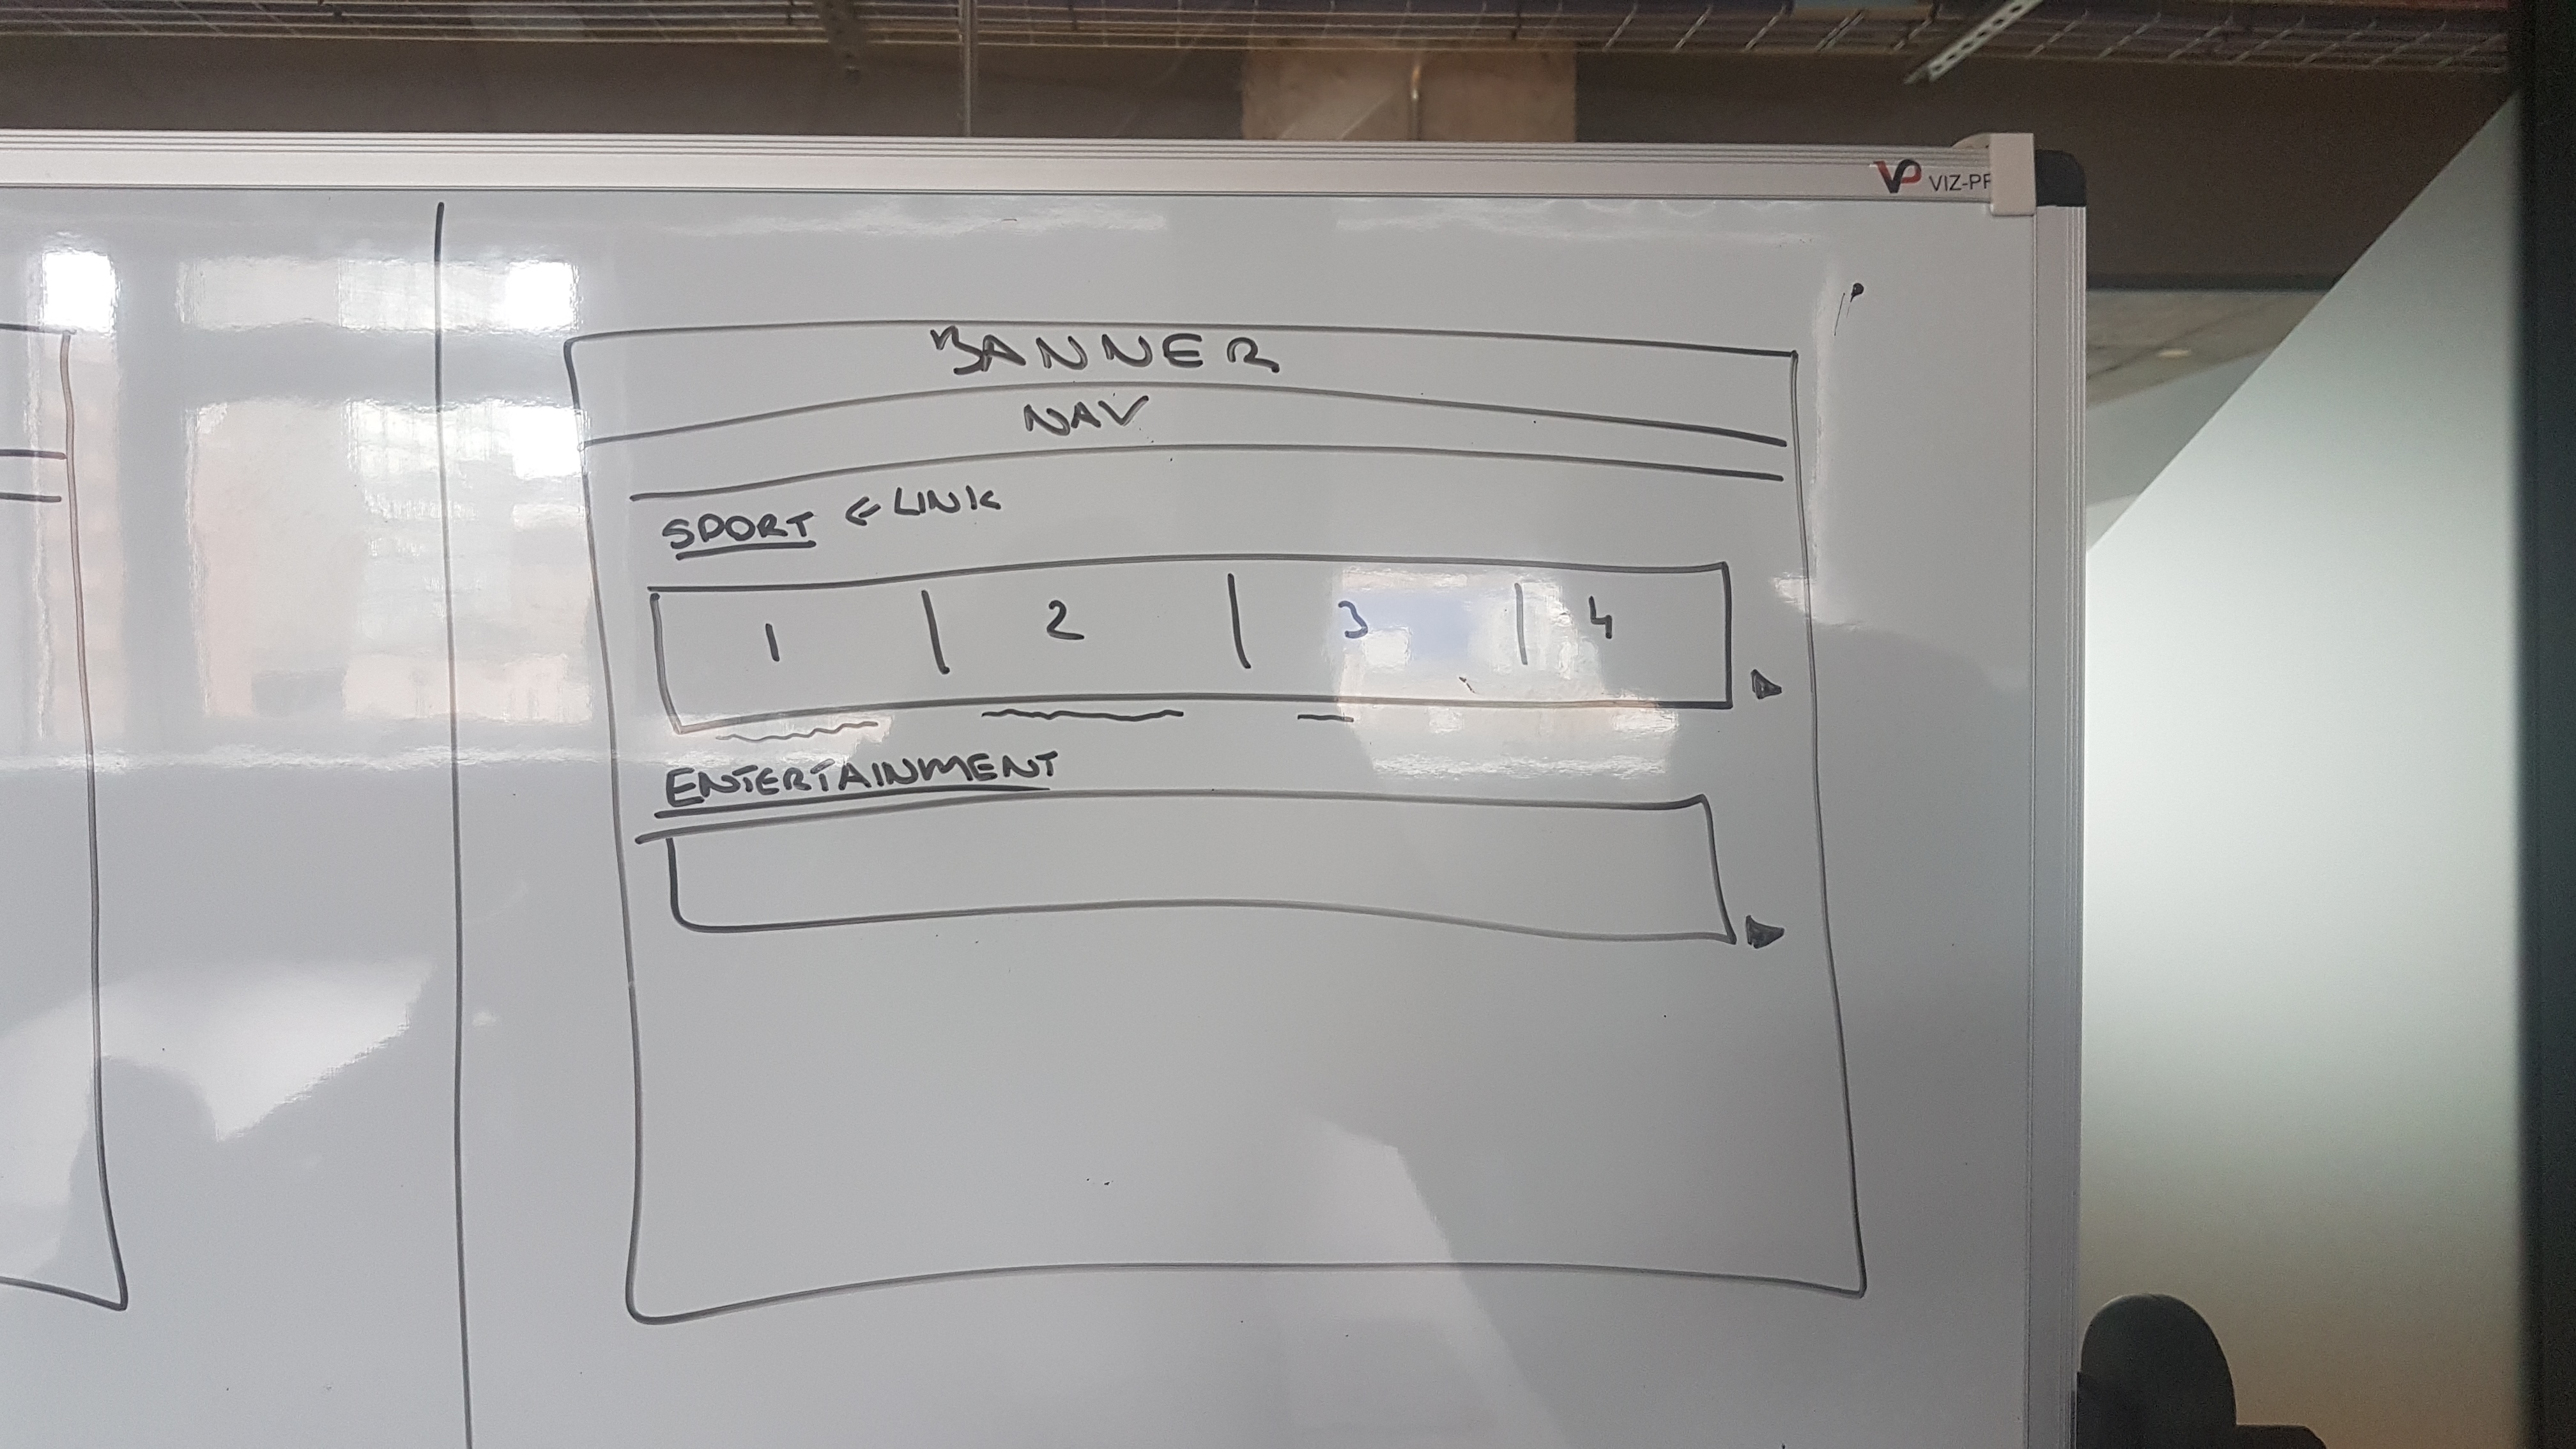 VIZ-PR
BANNER
NAV
SPORT ← LINK
1 | 2 | 3 | 4
ENTERTAINMENT